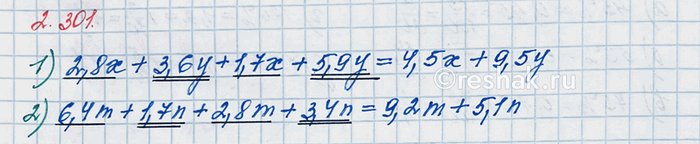 2.301.
1) 2,8x + 3,6y + 1,7x + 5,9y = 4,5x + 9,5y
©reshak.ru
2) 6,4m + 1,7n + 2,8m + 3,4n = 9,2m + 5,1n